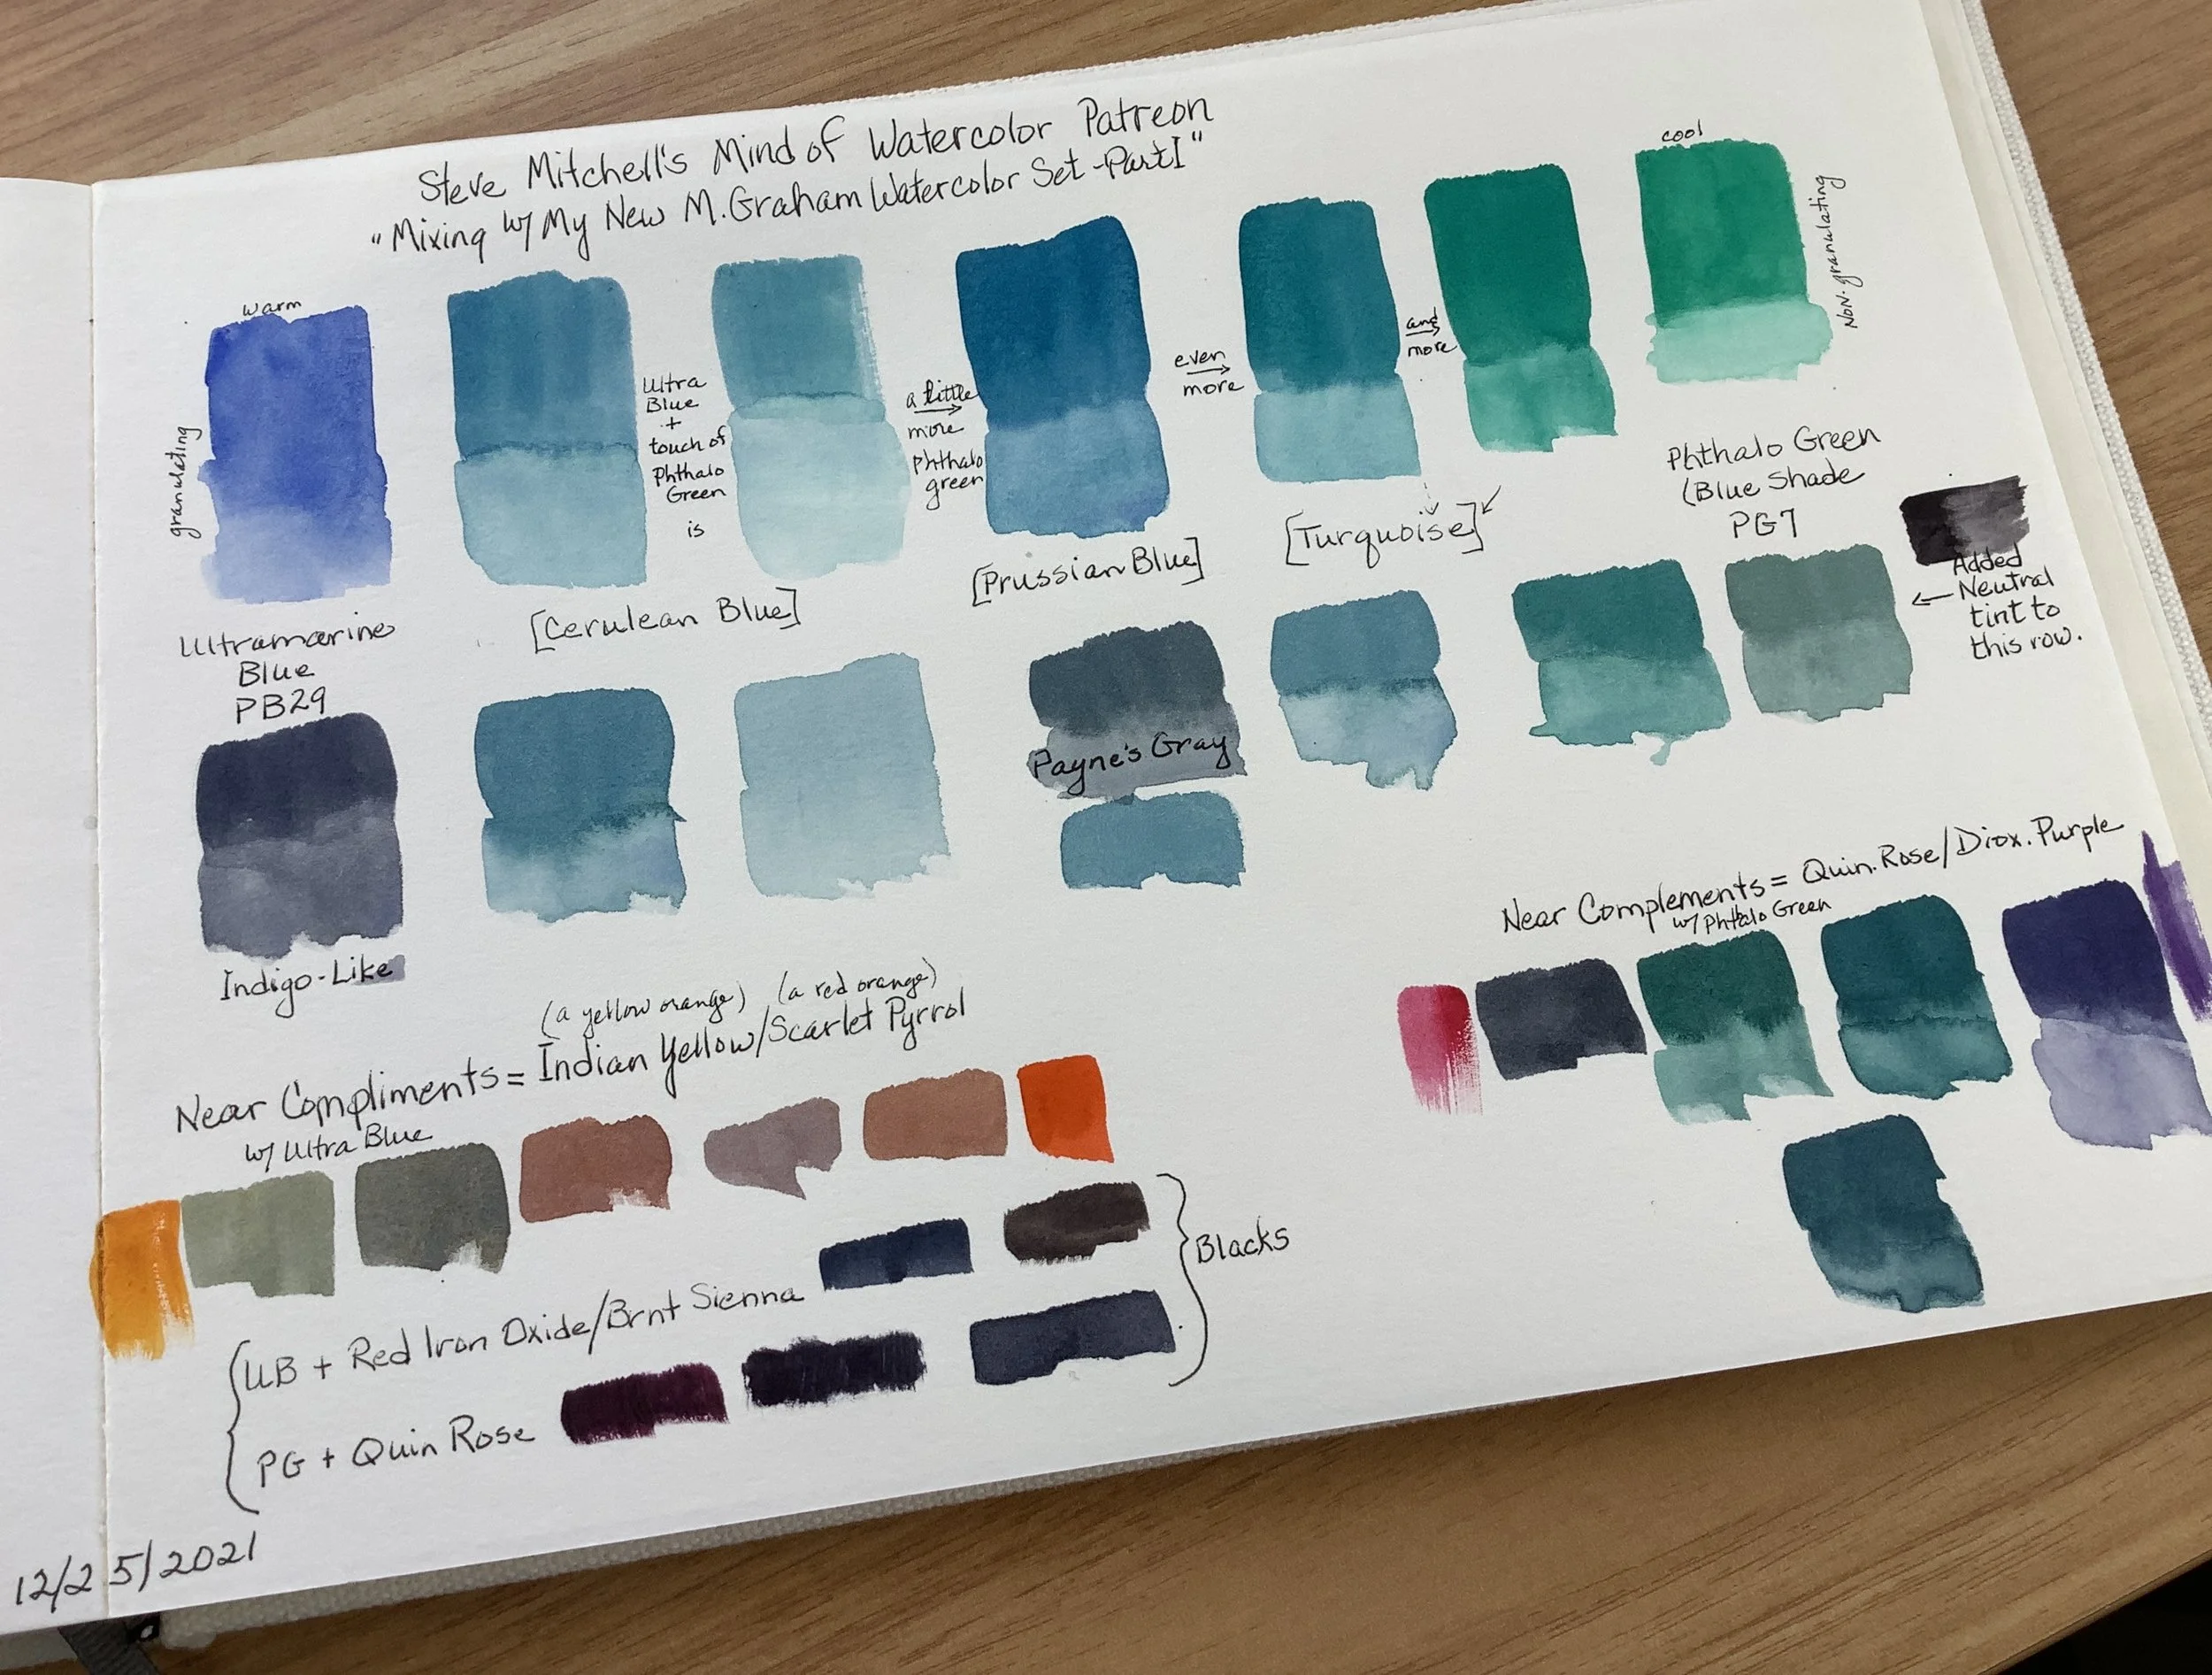 Steve Mitchell's Mind of Watercolor Patreon
"Mixing w/ My New M.Graham Watercolor Set -Part I"
warm
granulating
Ultramarine
Blue
PB29
Ultra
Blue
+
touch of
Phthalo
Green
is
[Cerulean Blue]
a little
more
phthalo
green
[Prussian Blue]
even
more
[Turquoise]
and
more
cool
Non-granulating
Phthalo Green
(Blue Shade
PG7
Added
Neutral
tint to
this row.
Indigo-Like
Payne's Gray
Near Complements = Quin.Rose/Diox.Purple
w/ Phtalo Green
(a yellow orange) (a red orange)
Near Compliments = Indian Yellow/Scarlet Pyrrol
w/ Ultra Blue
UB + Red Iron Oxide/Brnt Sienna
PG + Quin Rose
Blacks
12/25/2021